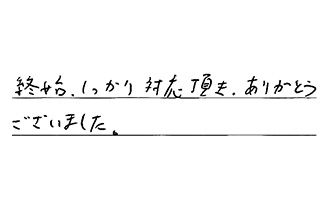 終始、しっかり対応頂き、ありがとう
ございました。